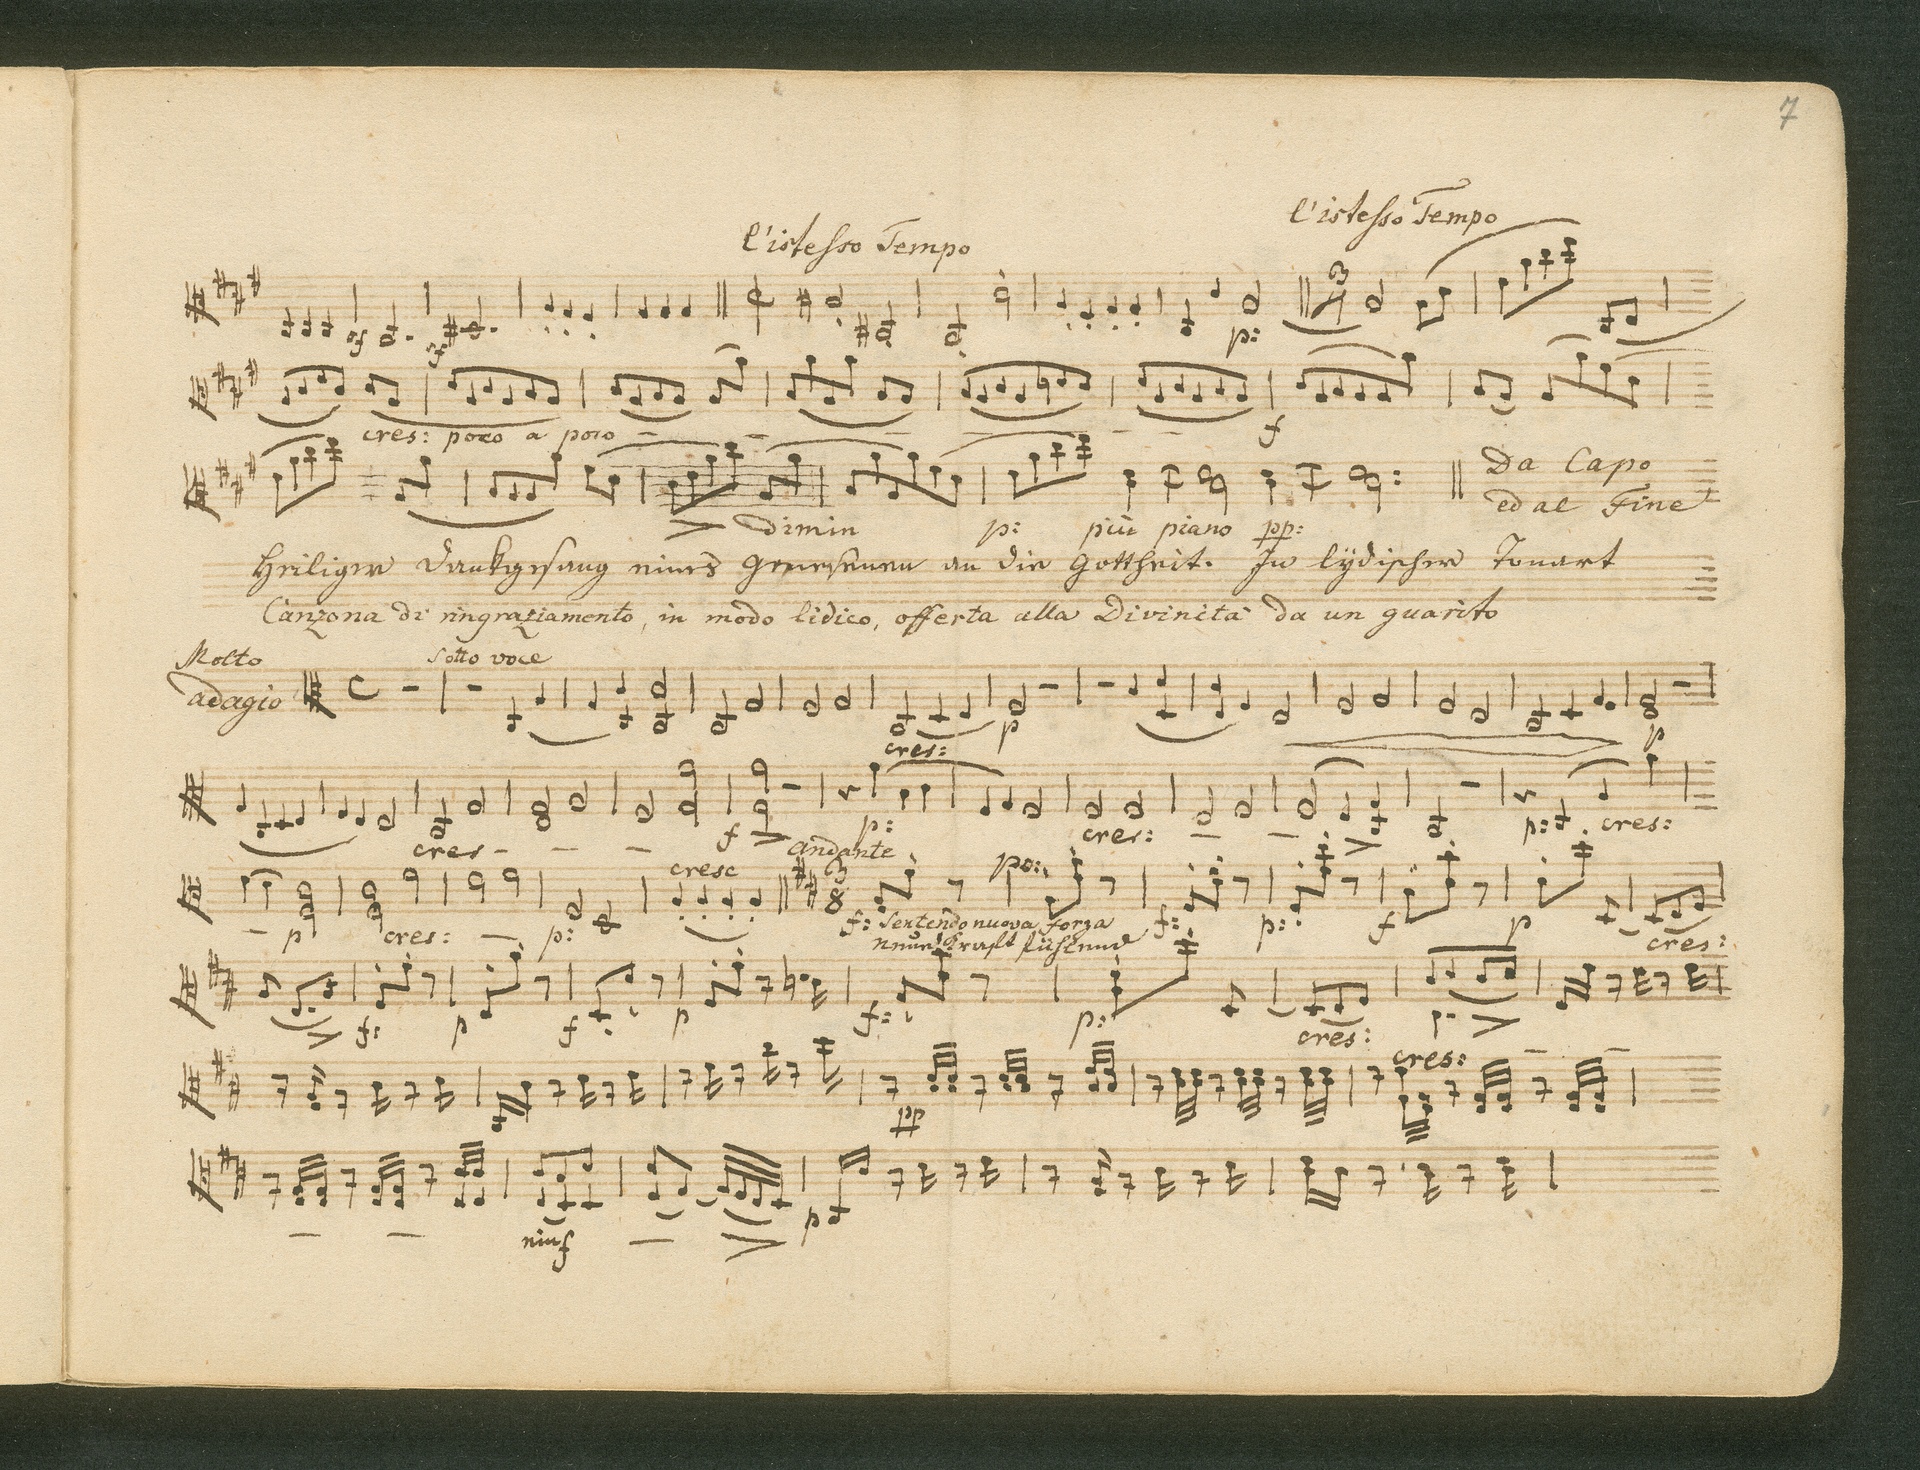 7
l'istesso Tempo
l'istesso Tempo
sf
sf
p:
3
cres: poco a poco
f
Da Capo
ed al Fine
dimin p: più piano pp:
Heiliger Dankgesang eines Genesenen an die Gottheit. In lÿdischer Tonart
Canzona di ringraziamento, in modo lidico, offerta alla Divinità da un guarito
Molto sotto voce
adagio
cres: p p
cres f p: cres: p: cres:
andante
cresc po:
3
8
p cres: p: f: f: p: f p
Sentendo nuova forza cres:
neue Kraft fühlend
f: p f p f: p: cres: p:
cres:
pp
f p